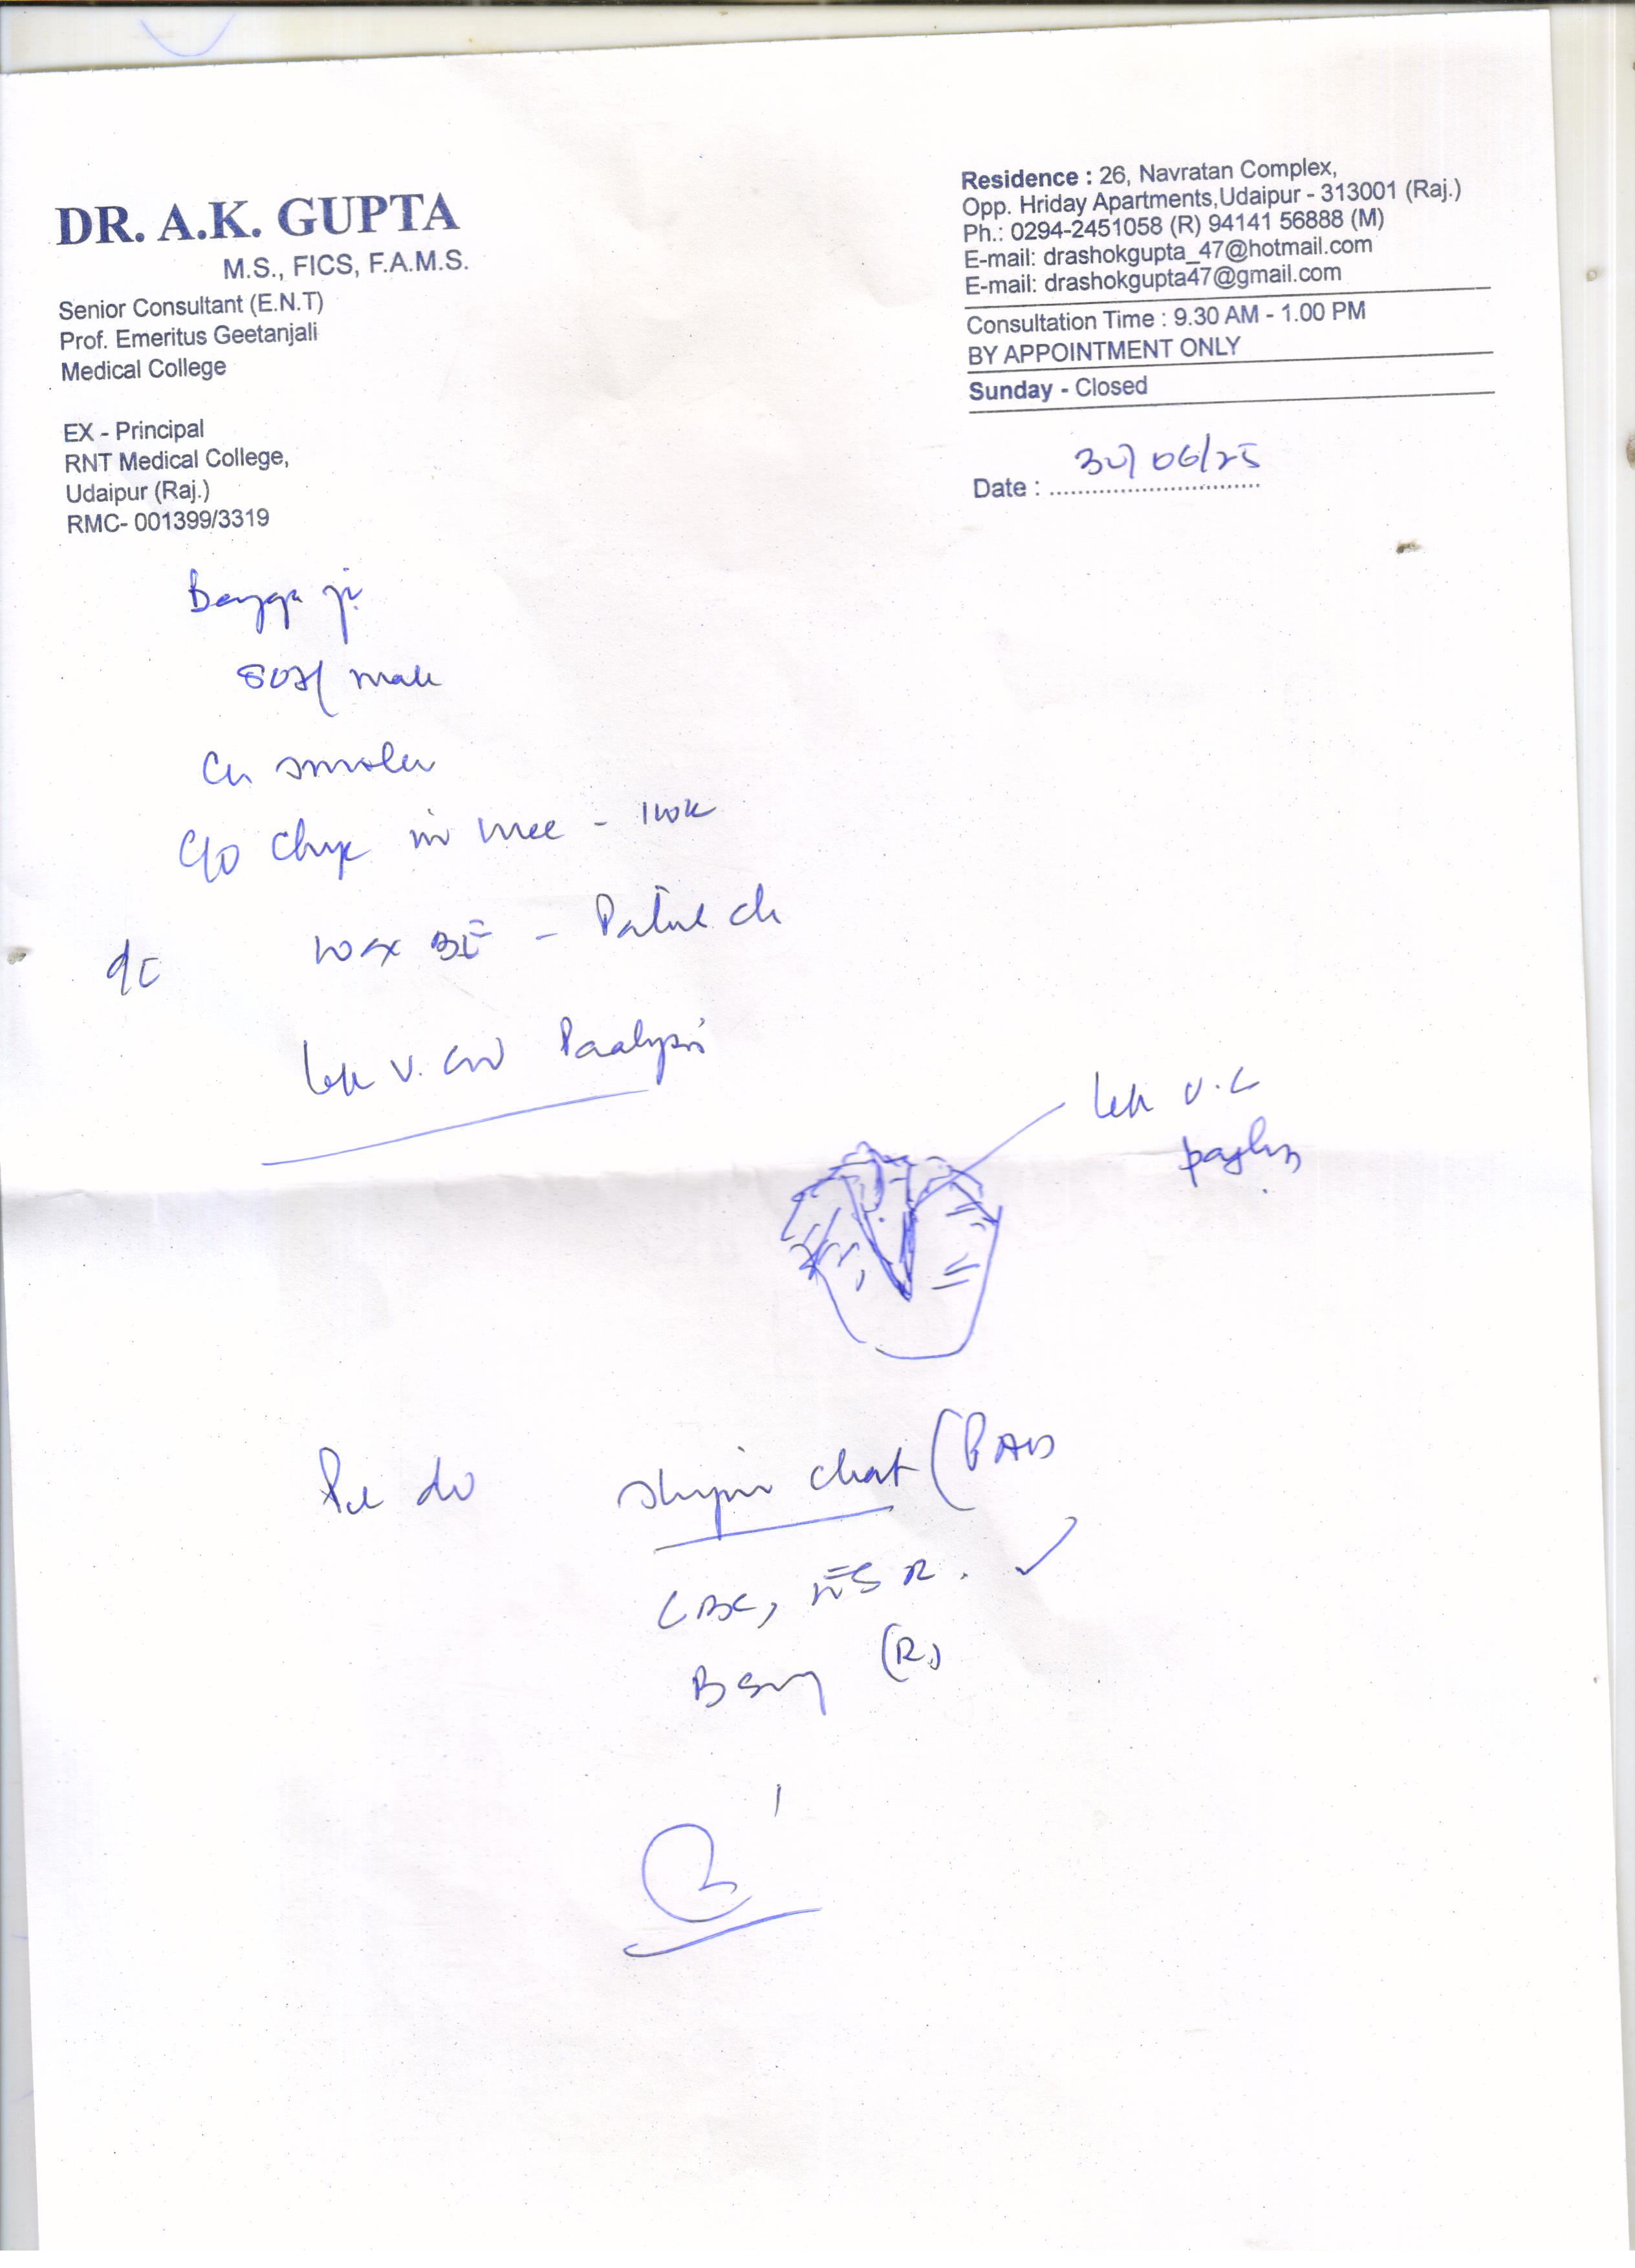 DR. A.K. GUPTA
M.S., FICS, F.A.M.S.
Senior Consultant (E.N.T)
Prof. Emeritus Geetanjali
Medical College
EX - Principal
RNT Medical College,
Udaipur (Raj.)
RMC- 001399/3319
Residence : 26, Navratan Complex,
Opp. Hriday Apartments,Udaipur - 313001 (Raj.)
Ph.: 0294-2451058 (R) 94141 56888 (M)
E-mail: drashokgupta_47@hotmail.com
E-mail: drashokgupta47@gmail.com
Consultation Time : 9.30 AM - 1.00 PM
BY APPOINTMENT ONLY
Sunday - Closed
Date : 30/06/25
ji
male
smoker
C/O in - 1 wk
wax BE -
V. Cord Paralysis
V.C
chest (PA)
CBC, ESR.
(R)